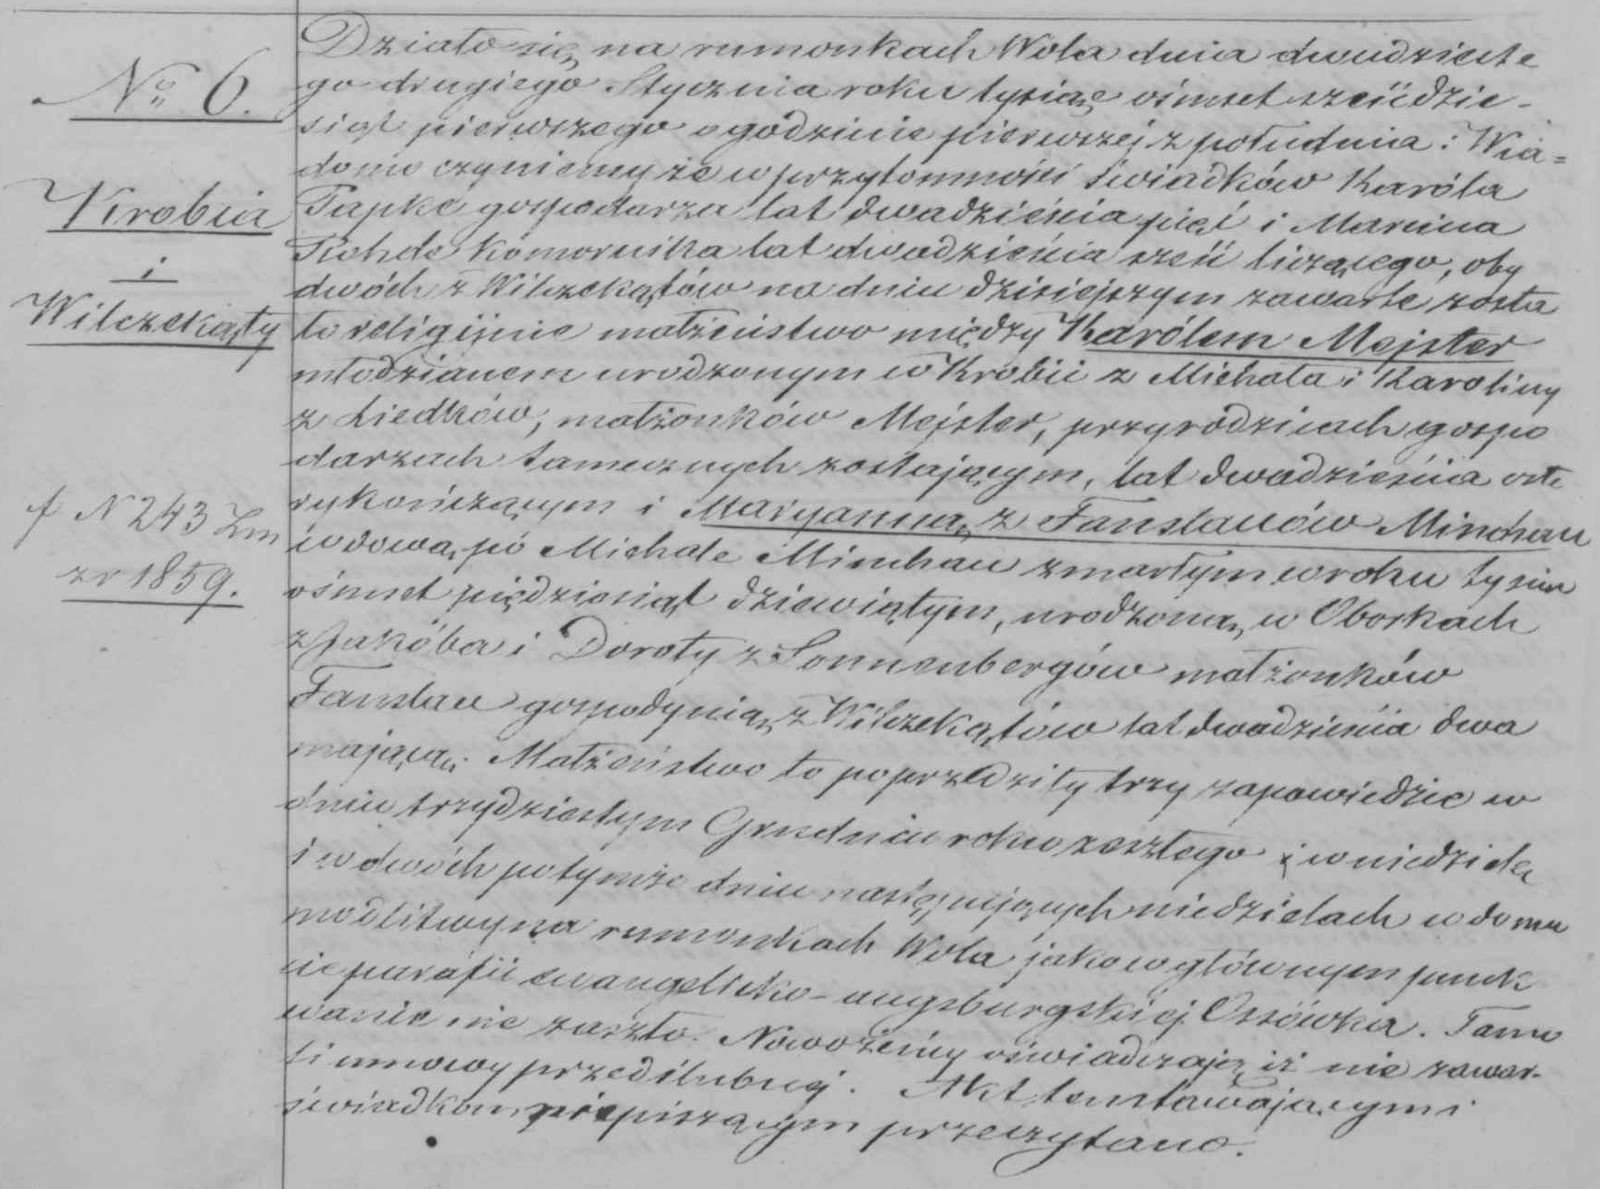 No 6.
Krobia
i
Wilczekąty
f N 243 Zm
z r 1859.
Działo się na rumonkach Wola dnia dwudzieste
go drugiego Stycznia roku tysiąc ośmset sześćdzie-
siąt pierwszego o godzinie pierwszej z południa: Wia=
domo czyniemy że w przytomności świadków Karóla
Papke gospodarza lat dwadzieścia pięć i Marcina
Rohde komornika lat dwadzieścia sześć liczącego, oby
dwóch z Wilczekątów na dniu dzisiejszym zawarte zosta
ło religijnie małżeństwo między Karólem Mejster
młodzianem urodzonym w Krobii z Michała i Karoliny
z Liedków, małżonków Mejster, przy rodzicach gospo
darzach tamecznych zostającym, lat dwadzieścia czte
ry kończącym i Maryanną z Fanslauów Minchau
wdową po Michale Minchau zmarłym w roku tysiąc
ośmset pięćdziesiąt dziewiątym, urodzoną w Oborkach
z Jakóba i Doroty z Sonnenbergów małżonków
Fanslau gospodynią z Wilczekątów lat dwadzieścia dwa
mającą. Małżeństwo to poprzedziły trzy zapowiedzie w
dniu trzydziestym Grudnia roku zeszłego i w niedzielę
i w dwóch po tymże dniu następujących niedzielach w domu
modlitwy na rumonkach Wola jako w głównym punk
cie parafii ewangelicko-augsburgskiej Ossówka. Tamo
wanie nie zaszło. Nowożeńcy oświadczają iż nie zawar-
li umowy przedślubnej. Akt ten stawającymi
świadkom niepiszącym przeczytano.